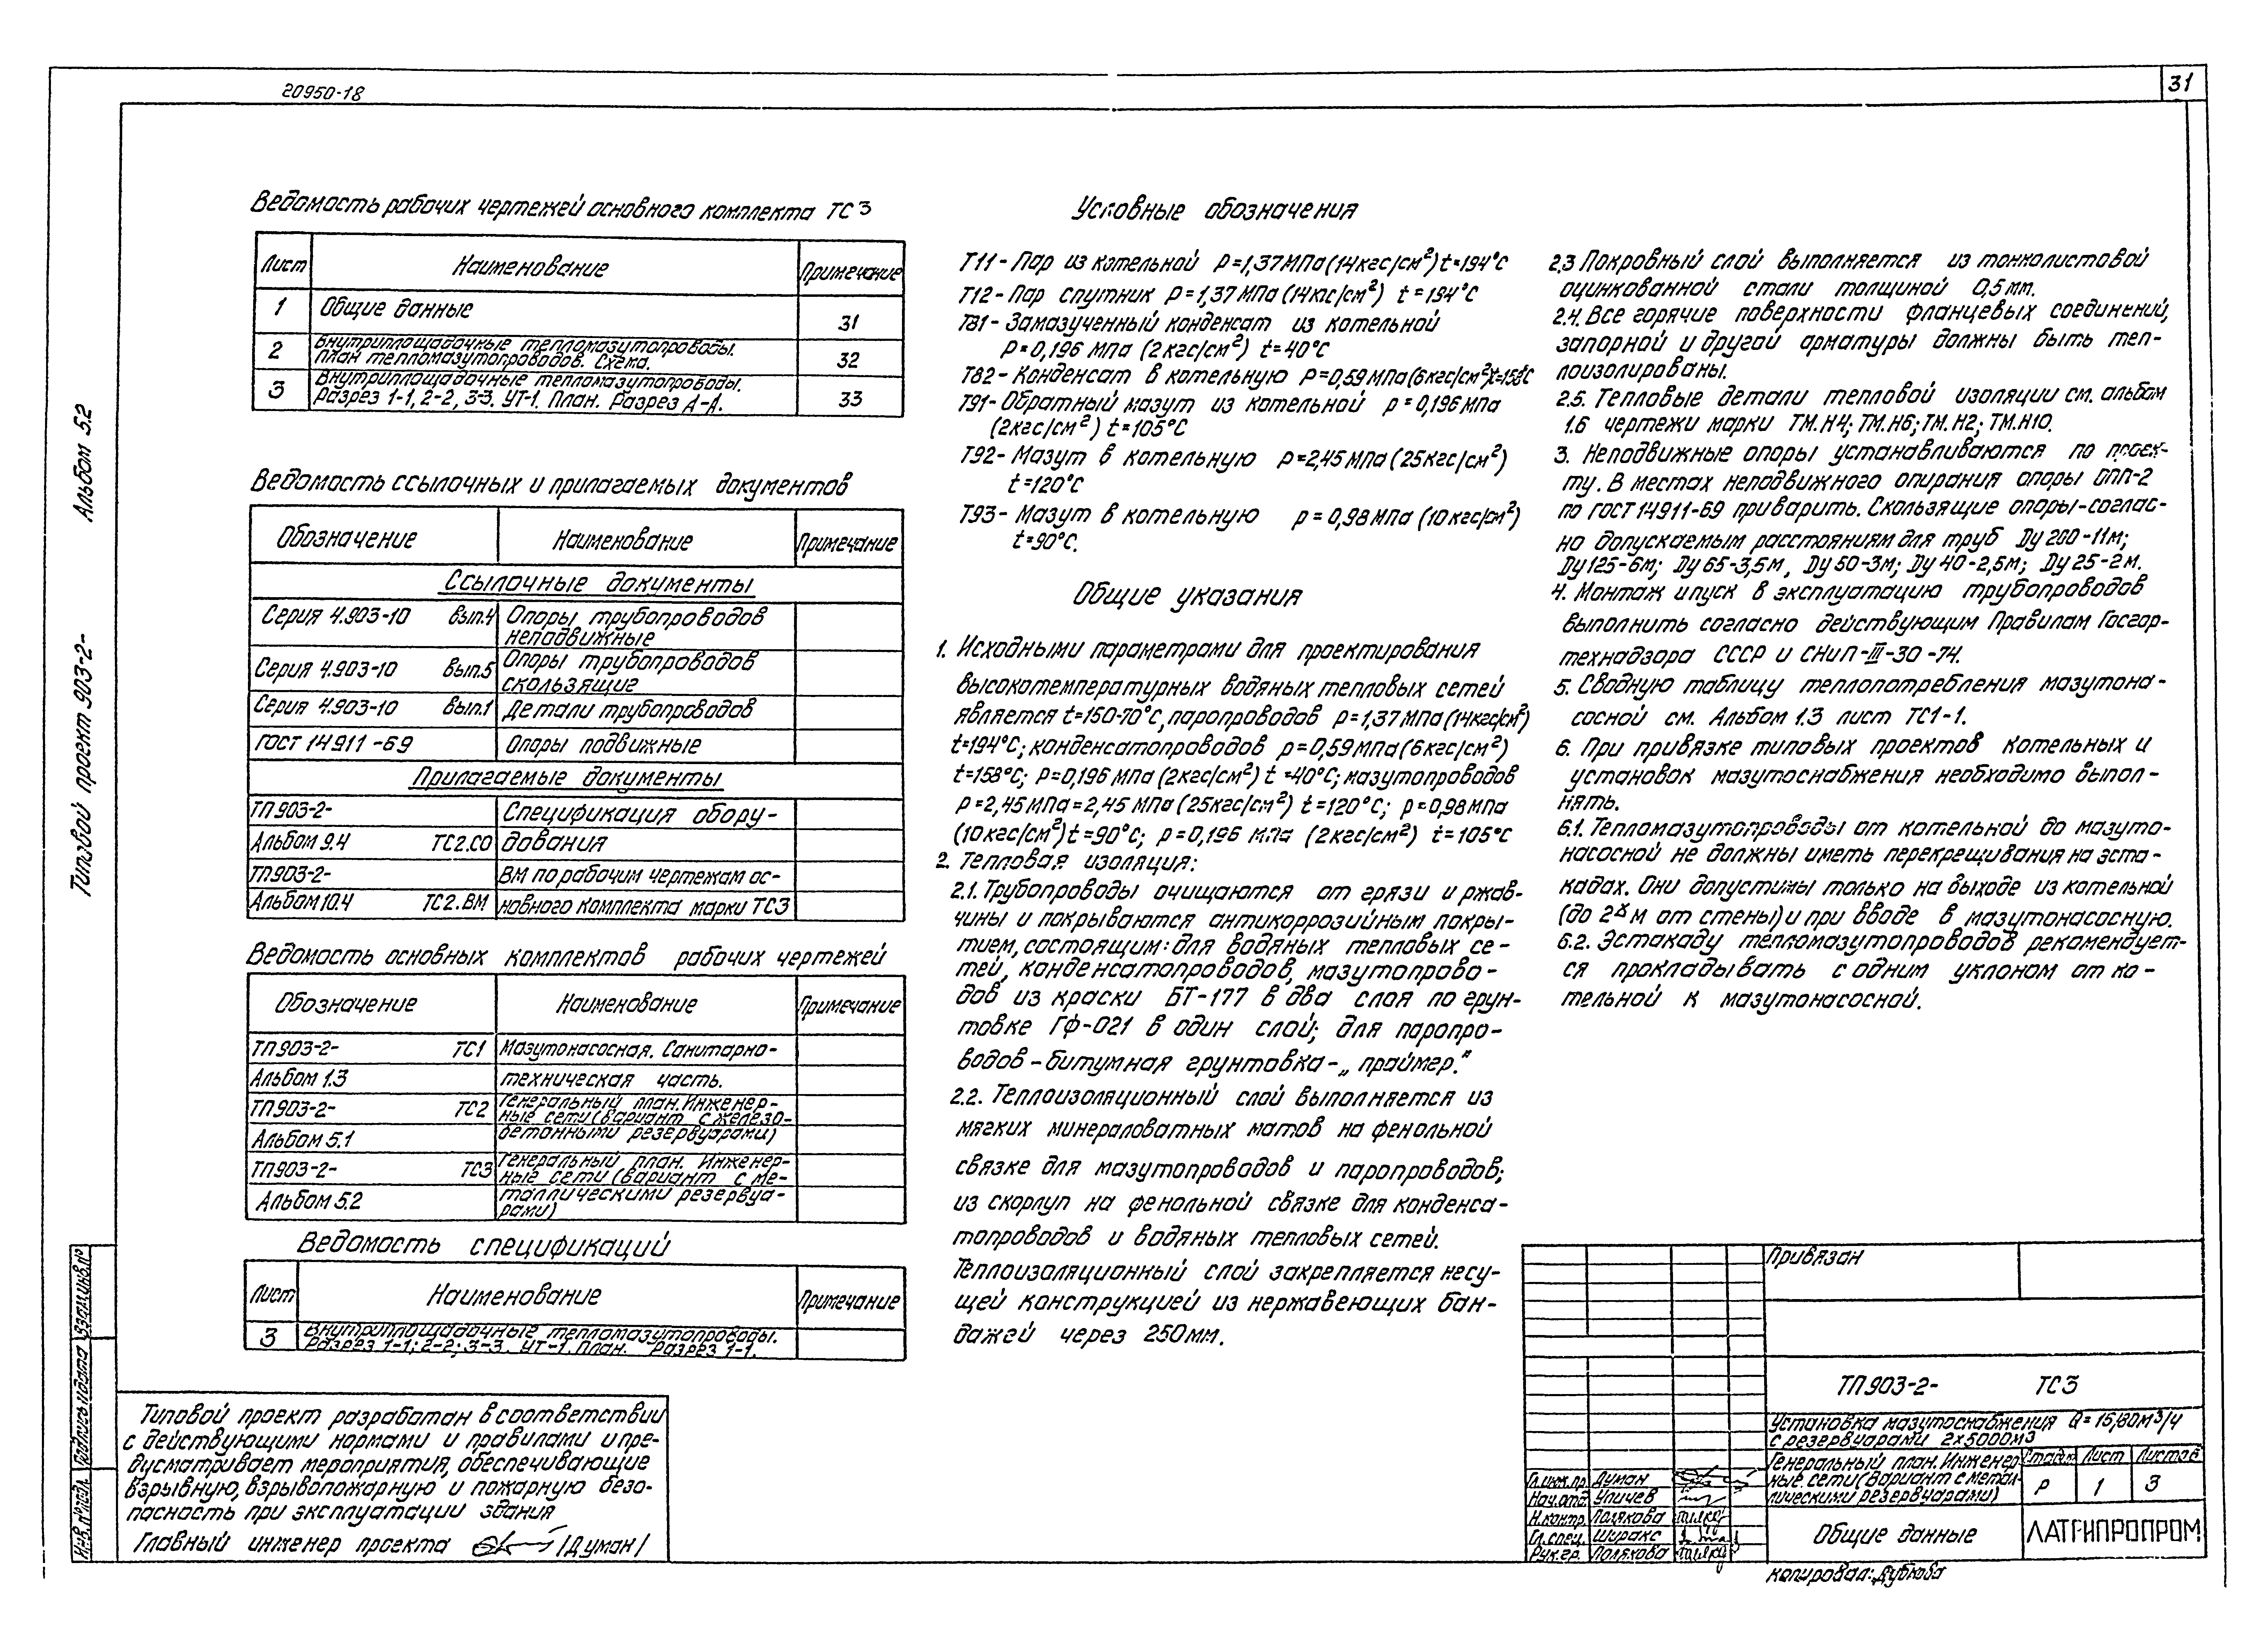 20950-18
31
Альбом 5.2
Типовой проект 903-2-
Ведомость рабочих чертежей основного комплекта ТС3
Лист Наименование Примечание
1 Общие данные 31
2 Внутриплощадочные тепломазутопроводы.
План тепломазутопроводов. Схема. 32
3 Внутриплощадочные тепломазутопроводы.
Разрез 1-1, 2-2, 3-3. УТ-1. План. Разрез А-А. 33
Ведомость ссылочных и прилагаемых документов
Обозначение Наименование Примечание
Ссылочные документы
Серия 4.903-10 вып.4 Опоры трубопроводов
неподвижные
Серия 4.903-10 вып.5 Опоры трубопроводов
скользящие
Серия 4.903-10 вып.1 Детали трубопроводов
ГОСТ 14911-69 Опоры подвижные
Прилагаемые документы
ТП903-2- Спецификация обору-
Альбом 9.4 ТС2.СО дования
ТП903-2- ВМ по рабочим чертежам ос-
Альбом 10.4 ТС2.ВМ новного комплекта марки ТС3
Ведомость основных комплектов рабочих чертежей
Обозначение Наименование Примечание
ТП903-2- ТС1 Мазутонасосная. Санитарно-
Альбом 1.3 техническая часть.
ТП903-2- ТС2 Генеральный план. Инженер-
ные сети (вариант с железо-
Альбом 5.1 бетонными резервуарами)
ТП903-2- ТС3 Генеральный план. Инженер-
ные сети (вариант с ме-
Альбом 5.2 таллическими резервуа-
рами)
Ведомость спецификаций
Лист Наименование Примечание
3 Внутриплощадочные тепломазутопроводы.
Разрез 1-1; 2-2; 3-3. УТ-1. План. Разрез 1-1.
Типовой проект разработан в соответствии
с действующими нормами и правилами и пре-
дусматривает мероприятия, обеспечивающие
взрывную, взрывопожарную и пожарную безо-
пасность при эксплуатации здания
Главный инженер проекта /Думан/
Условные обозначения
Т11- Пар из котельной р=1,37МПа (14кгс/см²) t=194°С
Т12- Пар спутник р=1,37МПа (14кгс/см²) t=194°С
Т81- Замазученный конденсат из котельной
р=0,196 МПа (2кгс/см²) t=40°С
Т82- Конденсат в котельную р=0,59МПа (6кгс/см²) t=158°С
Т91- Обратный мазут из котельной р=0,196 МПа
(2кгс/см²) t=105°С
Т92- Мазут в котельную р=2,45МПа (25кгс/см²)
t=120°С
Т93- Мазут в котельную р=0,98МПа (10кгс/см²)
t=90°С.
Общие указания
1. Исходными параметрами для проектирования
высокотемпературных водяных тепловых сетей
является t=150-70°С, паропроводов р=1,37МПа (14кгс/см²)
t=194°С; конденсатопроводов р=0,59МПа (6кгс/см²)
t=158°С; р=0,196МПа (2кгс/см²) t=40°С; мазутопроводов
р=2,45МПа=2,45МПа (25кгс/см²) t=120°С; р=0,98МПа
(10кгс/см²) t=90°С; р=0,196 МПа (2кгс/см²) t=105°С
2. Тепловая изоляция:
2.1. Трубопроводы очищаются от грязи и ржав-
чины и покрываются антикоррозийным покры-
тием, состоящим: для водяных тепловых се-
тей, конденсатопроводов, мазутопрово-
дов из краски БТ-177 в два слоя по грун-
товке ГФ-021 в один слой; для паропро-
водов - битумная грунтовка - „праймер."
2.2. Теплоизоляционный слой выполняется из
мягких минераловатных матов на фенольной
связке для мазутопроводов и паропроводов;
из скорлуп на фенольной связке для конденса-
топроводов и водяных тепловых сетей.
Теплоизоляционный слой закрепляется несу-
щей конструкцией из нержавеющих бан-
дажей через 250мм.
2.3 Покровный слой выполняется из тонколистовой
оцинкованной стали толщиной 0,5мм.
2.4. Все горячие поверхности фланцевых соединений,
запорной и другой арматуры должны быть теп-
лоизолированы.
2.5. Тепловые детали тепловой изоляции см. альбом
1.6 чертежи марки ТМ.Н4; ТМ.Н6; ТМ.Н2; ТМ.Н10.
3. Неподвижные опоры устанавливаются по проек-
ту. В местах неподвижного опирания опоры ОПП-2
по ГОСТ 14911-69 приварить. Скользящие опоры-соглас-
но допускаемым расстояниям для труб Ду 200-11м;
Ду 125-6м; Ду 65-3,5м, Ду 50-3м; Ду 40-2,5м; Ду 25-2м.
4. Монтаж и пуск в эксплуатацию трубопроводов
выполнить согласно действующим Правилам Госгор-
технадзора СССР и СНиП-III-30-74.
5. Сводную таблицу теплопотребления мазутона-
сосной см. Альбом 1.3 лист ТС1-1.
6. При привязке типовых проектов котельных и
установок мазутоснабжения необходимо выпол-
нять.
6.1. Тепломазутопроводы от котельной до мазуто-
насосной не должны иметь перекрещивания на эста-
кадах. Они допустимы только на выходе из котельной
(до 2х м от стены) и при вводе в мазутонасосную.
6.2. Эстакаду тепломазутопроводов рекомендует-
ся прокладывать с одним уклоном от ко-
тельной к мазутонасосной.
Привязан
ТП903-2- ТС3
Установка мазутоснабжения Q=15,80м³/ч
с резервуарами 2х5000м³
Генеральный план. Инженер-
ные сети (вариант с метал-
лическими резервуарами)
Стадия Лист Листов
Р 1 3
Гл.инж.пр. Думан
Нач.отд. Уличев
Н.контр. Полякова
Гл.спец. Ширакс
Рук.гр. Полякова
Общие данные
ЛАТГИПРОПРОМ
Копировал: Дубкова
Инв.№подл. Подпись и дата Взам.инв.№